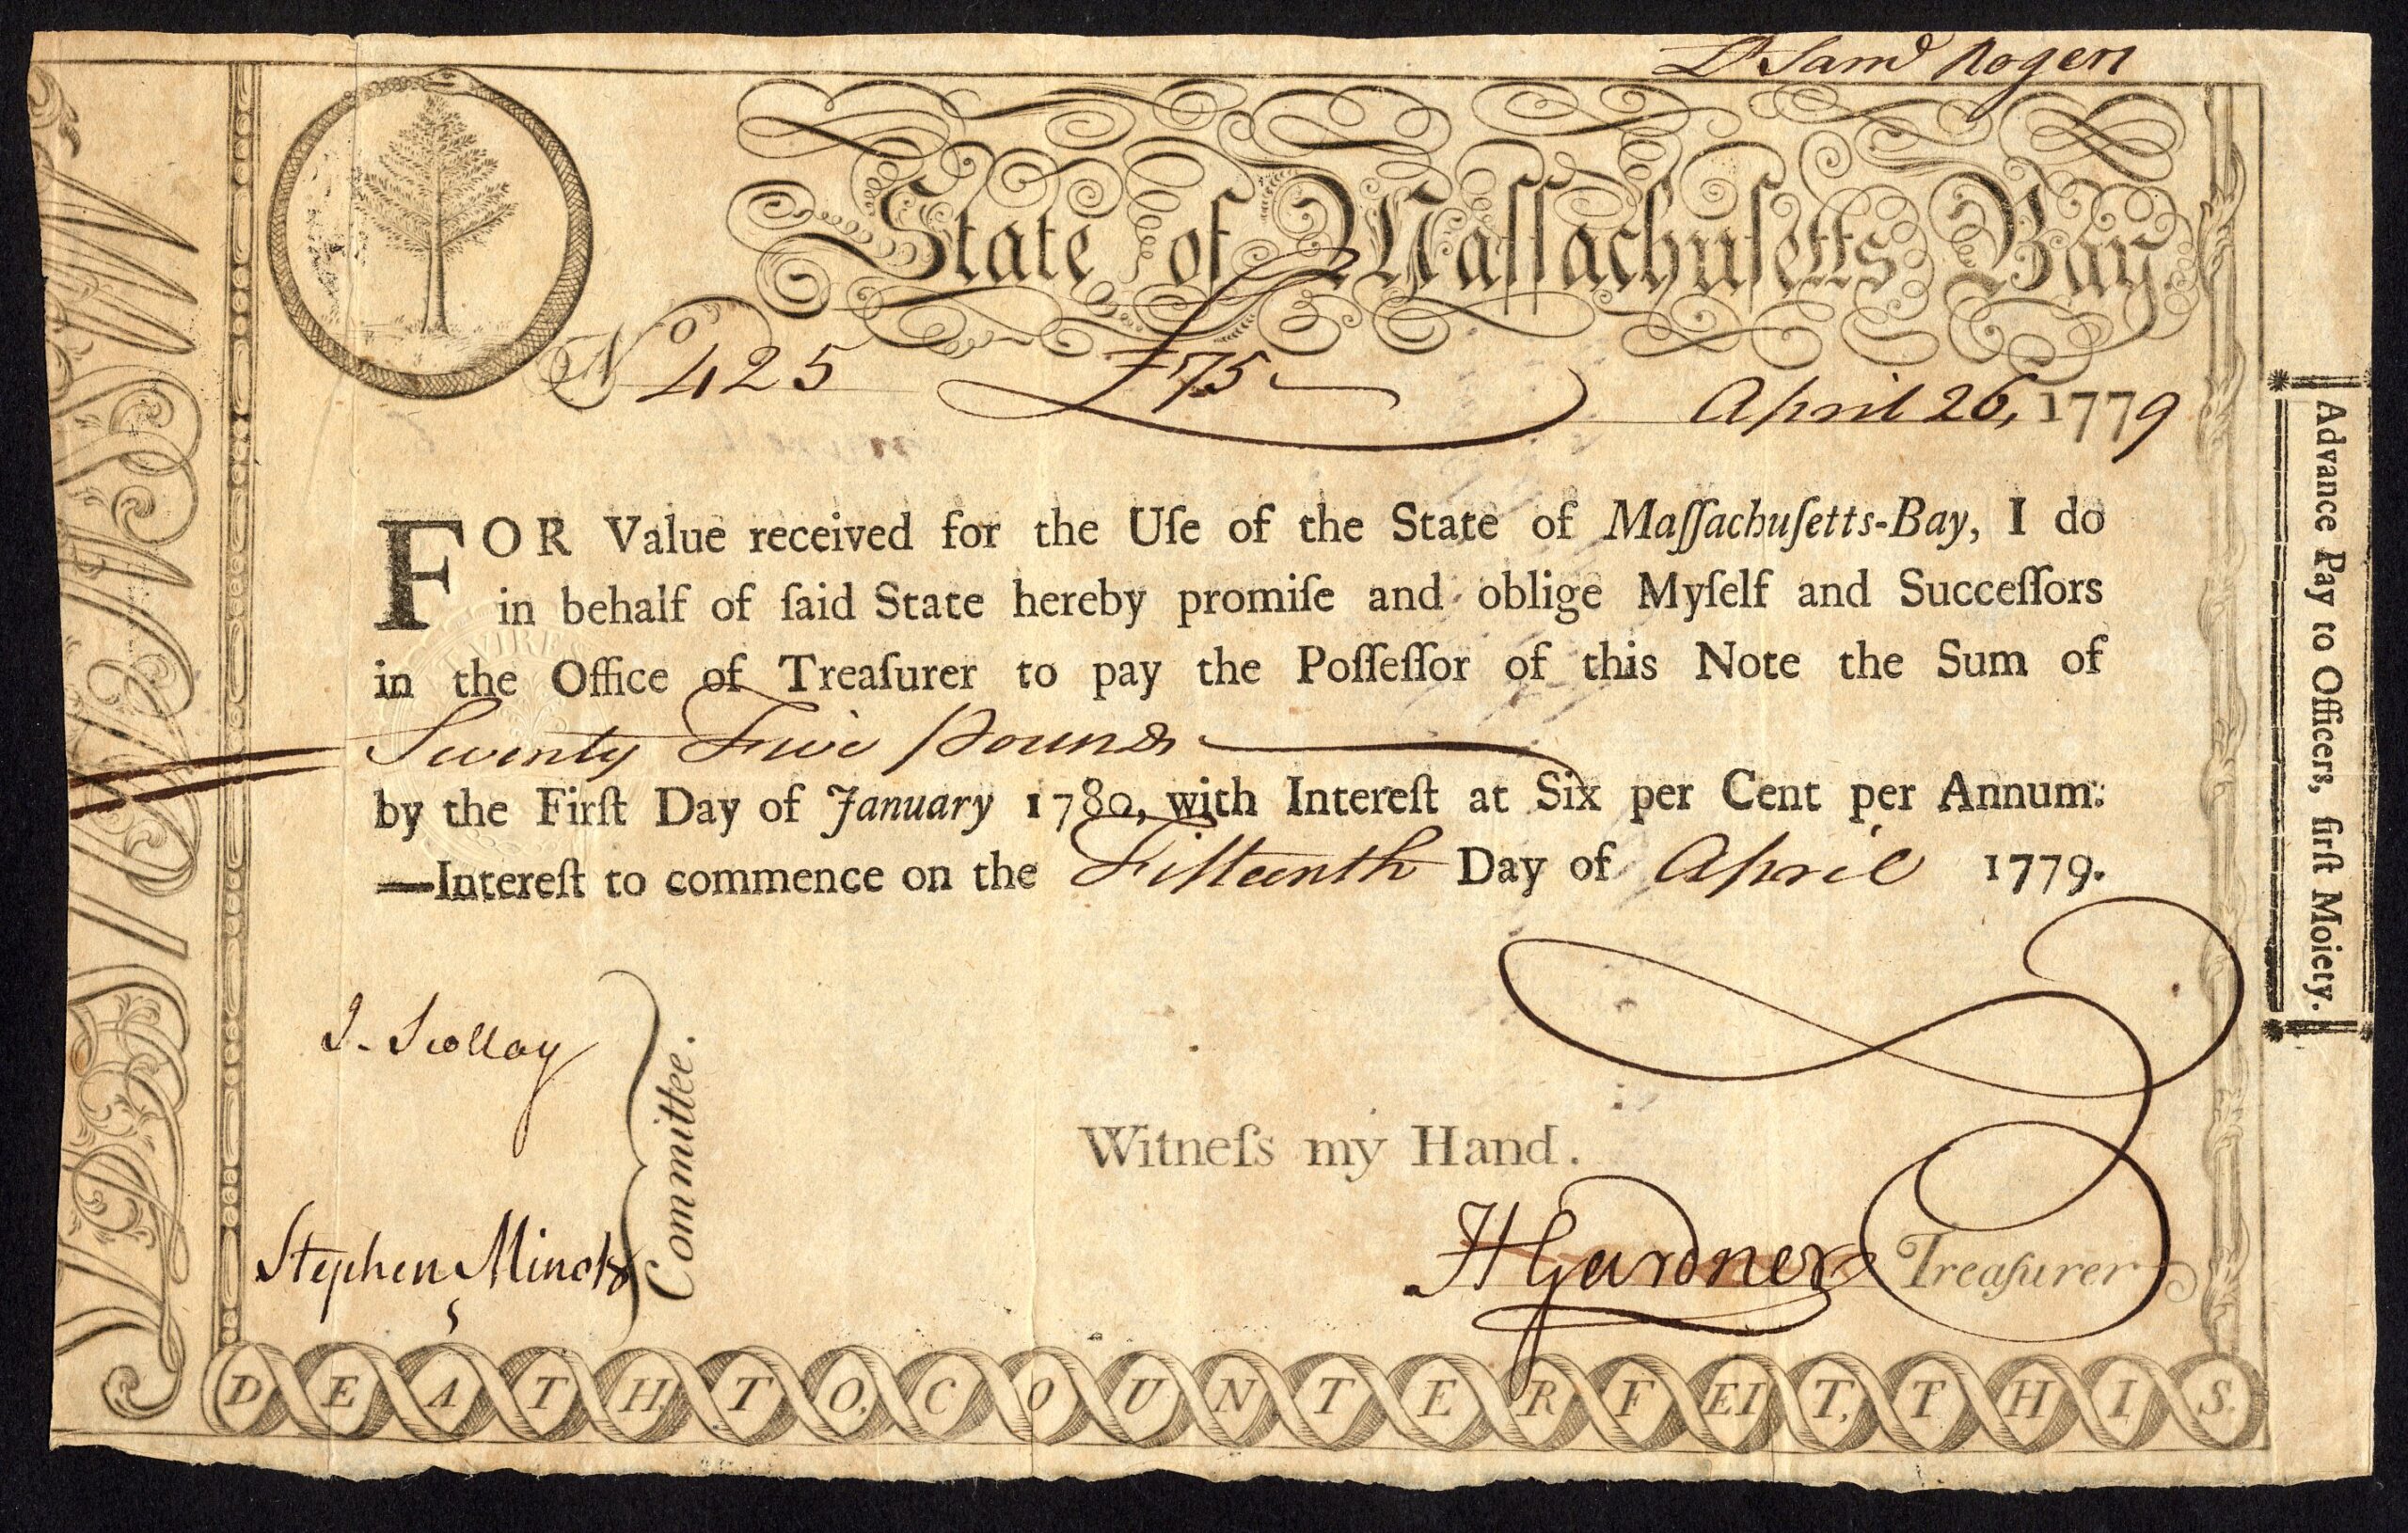 Dr Saml Rogers
State of Maſſachuſetts Bay.
No 425 £75 April 26, 1779
FOR Value received for the Uſe of the State of Maſſachuſetts-Bay, I do
in behalf of ſaid State hereby promiſe and oblige Myſelf and Succeſſors
in the Office of Treaſurer to pay the Poſſeſſor of this Note the Sum of
Seventy Five Pounds
by the Firſt Day of January 1780, with Intereſt at Six per Cent per Annum:
—Intereſt to commence on the Fifteenth Day of April 1779.
J. Scollay
Stephen Minot
Committee.
Witneſs my Hand.
HGardner Treaſurer
DEATH. TO. COUNTERFEIT. THIS.
Advance Pay to Officers, firſt Moiety.